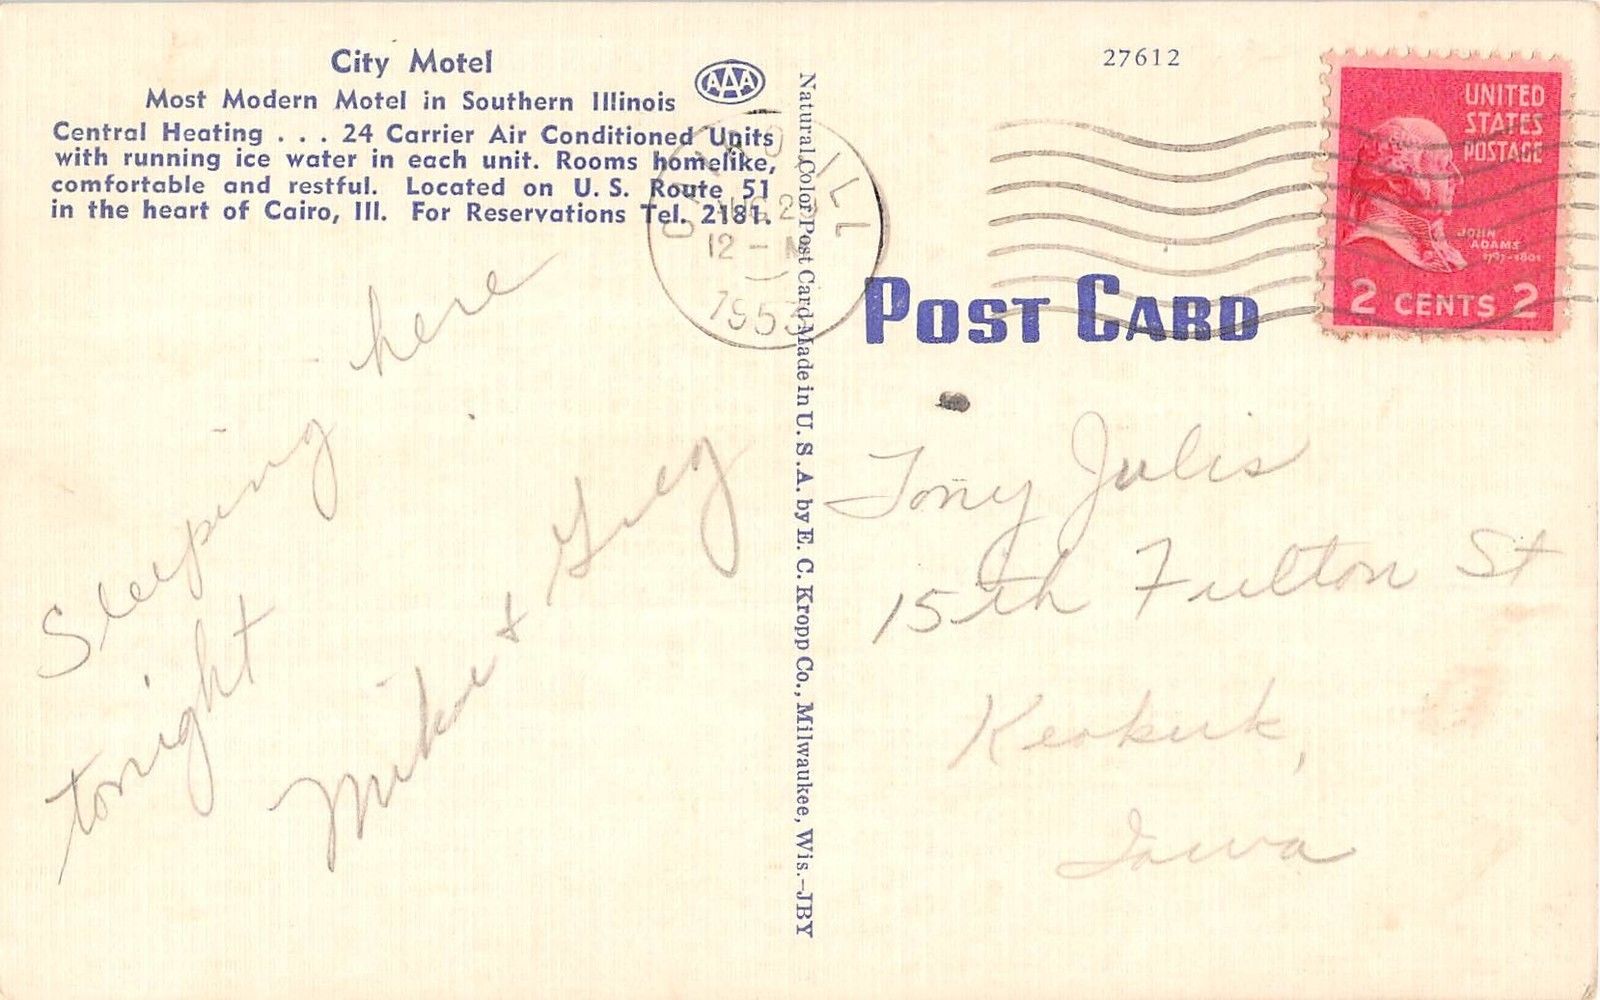 City Motel
Most Modern Motel in Southern Illinois
Central Heating . . . 24 Carrier Air Conditioned Units
with running ice water in each unit. Rooms homelike,
comfortable and restful. Located on U. S. Route 51
in the heart of Cairo, Ill. For Reservations Tel. 2181.
AAA
CAIRO ILL
29
12 - M
1953
Sleeping here
tonight
Mike & Greg
Natural Color Post Card Made in U. S. A. by E. C. Kropp Co., Milwaukee, Wis.-JBY
27612
UNITED
STATES
POSTAGE
JOHN
ADAMS
1797-1801
2 CENTS 2
POST CARD
Tony Julis
15th Fulton St
Keokuk,
Iowa